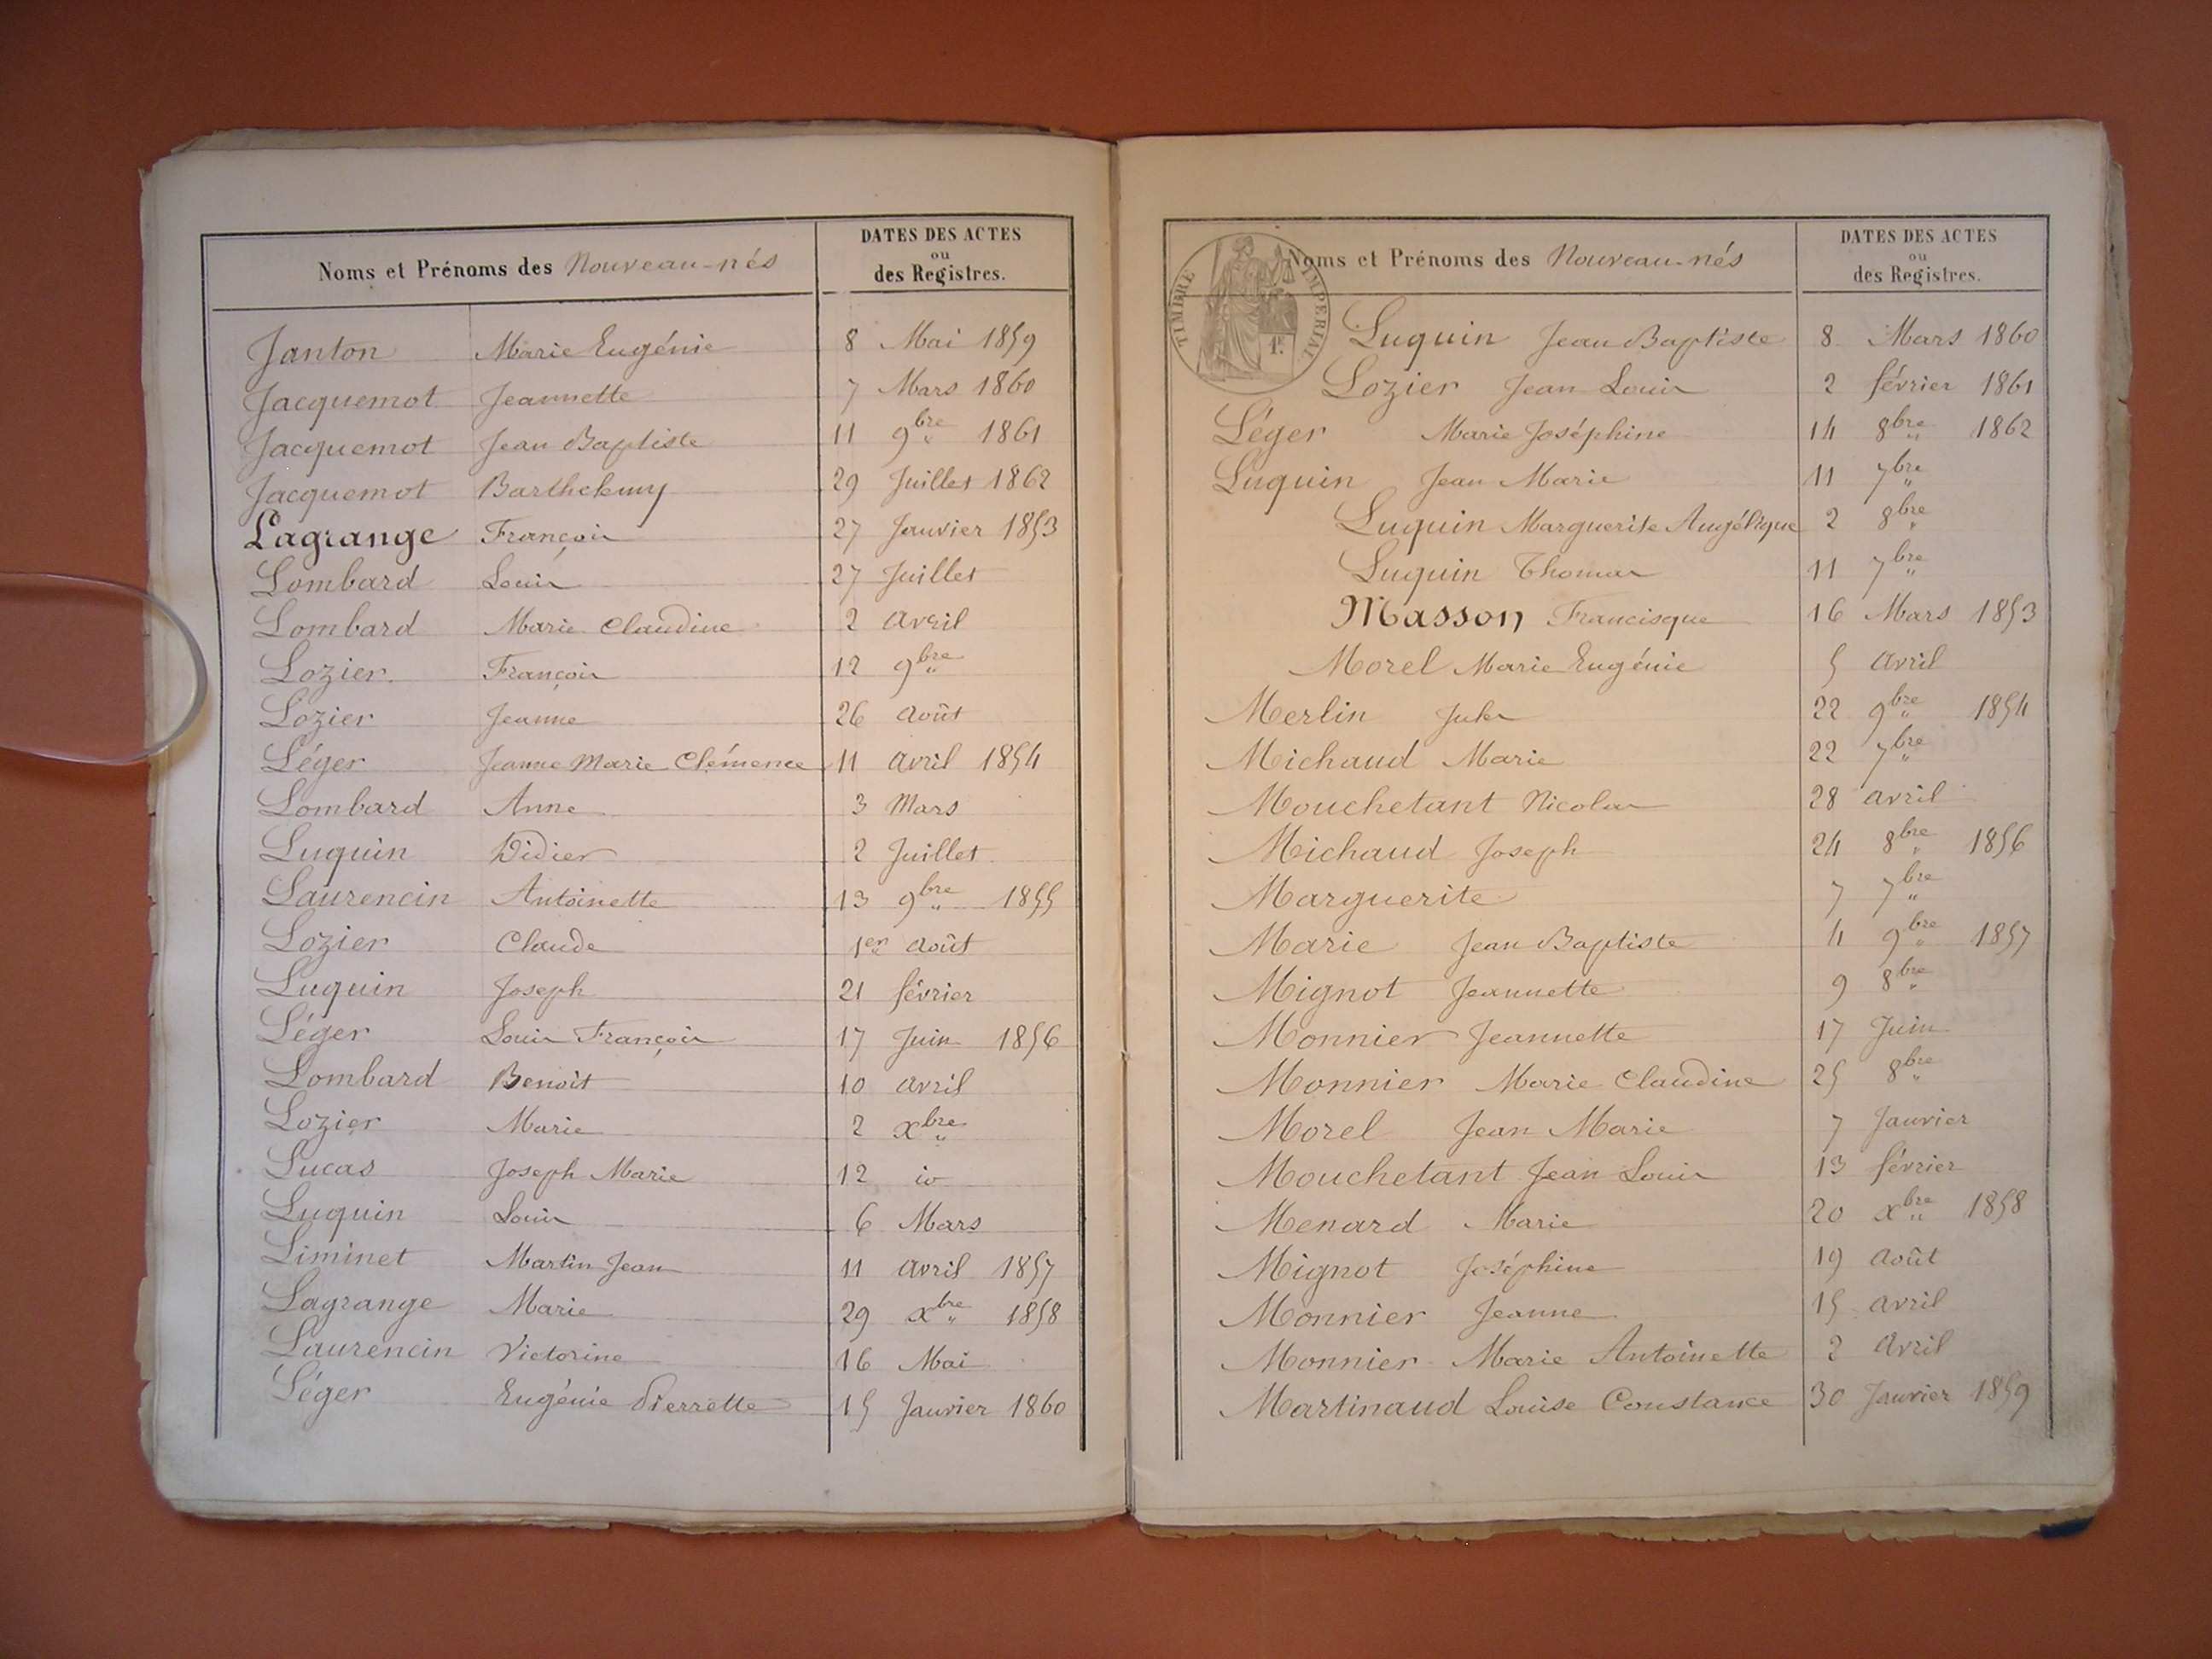 Noms et Prénoms des Nouveau-nés DATES DES ACTES
ou
des Registres.
Janton Marie Eugénie 8 Mai 1859
Jacquemot Jeannette 7 Mars 1860
Jacquemot Jean Baptiste 11 9bre 1861
Jacquemot Barthelemy 29 Juillet 1862
Lagrange François 27 Janvier 1853
Lombard Louis 27 Juillet
Lombard Marie Claudine 2 avril
Lozier François 12 9bre
Lozier Jeanne 26 août
Léger Jeanne Marie Clémence 11 avril 1854
Lombard Anne 3 Mars
Luquin Didier 2 Juillet
Laurencin Antoinette 13 9bre 1855
Lozier Claude 1er août
Luquin Joseph 21 février
Léger Louis François 17 Juin 1856
Lombard Benoit 10 avril
Lozier Marie 2 xbre
Lucas Joseph Marie 12 io
Luquin Louis 6 Mars
Liminet Martin Jean 11 avril 1857
Lagrange Marie 29 xbre 1858
Laurencin Victorine 16 Mai
Léger Eugénie Pierrette 15 Janvier 1860
Noms et Prénoms des Nouveau-nés DATES DES ACTES
ou
des Registres.
TIMBRE IMPERIAL
1F.
Luquin Jean Baptiste 8 Mars 1860
Lozier Jean Louis 2 février 1861
Léger Marie Joséphine 14 8bre 1862
Luquin Jean Marie 11 7bre
Luquin Marguerite Angélique 2 8bre
Luquin Thomas 11 7bre
Masson Francisque 16 Mars 1853
Morel Marie Eugénie 5 avril
Merlin Jules 22 9bre 1854
Michaud Marie 22 7bre
Mouchetant Nicolas 28 avril
Michaud Joseph 24 8bre 1856
Marguerite 7 7bre
Marie Jean Baptiste 4 9bre 1857
Mignot Jeannette 9 8bre
Monnier Jeannette 17 Juin
Monnier Marie Claudine 25 8bre
Morel Jean Marie 7 Janvier
Mouchetant Jean Louis 13 février
Menard Marie 20 xbre 1858
Mignot Joséphine 19 août
Monnier Jeanne 15 avril
Monnier Marie Antoinette 2 avril
Martinaud Louise Constance 30 Janvier 1859